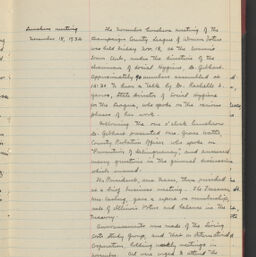 Luncheon meeting
November 18, 1932
The November luncheon meeting of the
Champaign County League of Women Voters
was held Friday Nov. 18, at the Women's
Town Club, under the direction of the
chairman of Social Hygiene, Dr. Gebhart.
Approximately 90 members assembled at
12:30 to hear a talk by Dr. Rachelle S.
Yarros, State director of Social Hygiene
for the League, who spoke on the various
phases of her work.
Following the one o'clock luncheon
Dr. Gebhart presented Mrs. Grace Watts,
County Probation Officer who spoke on
"Prevention of Delinquency", and answered
many questions in the general discussion
which ensued.
The President, Mrs. then presided
at a brief business meeting. The Treasurer,
Mrs. gave a report on membership,
sale of Illinois Voters and balance in the
Treasury.
Announcements was made of the Living
Costs Study Group, and that on International
Cooperation, holding weekly meetings in
November. All were urged to attend the